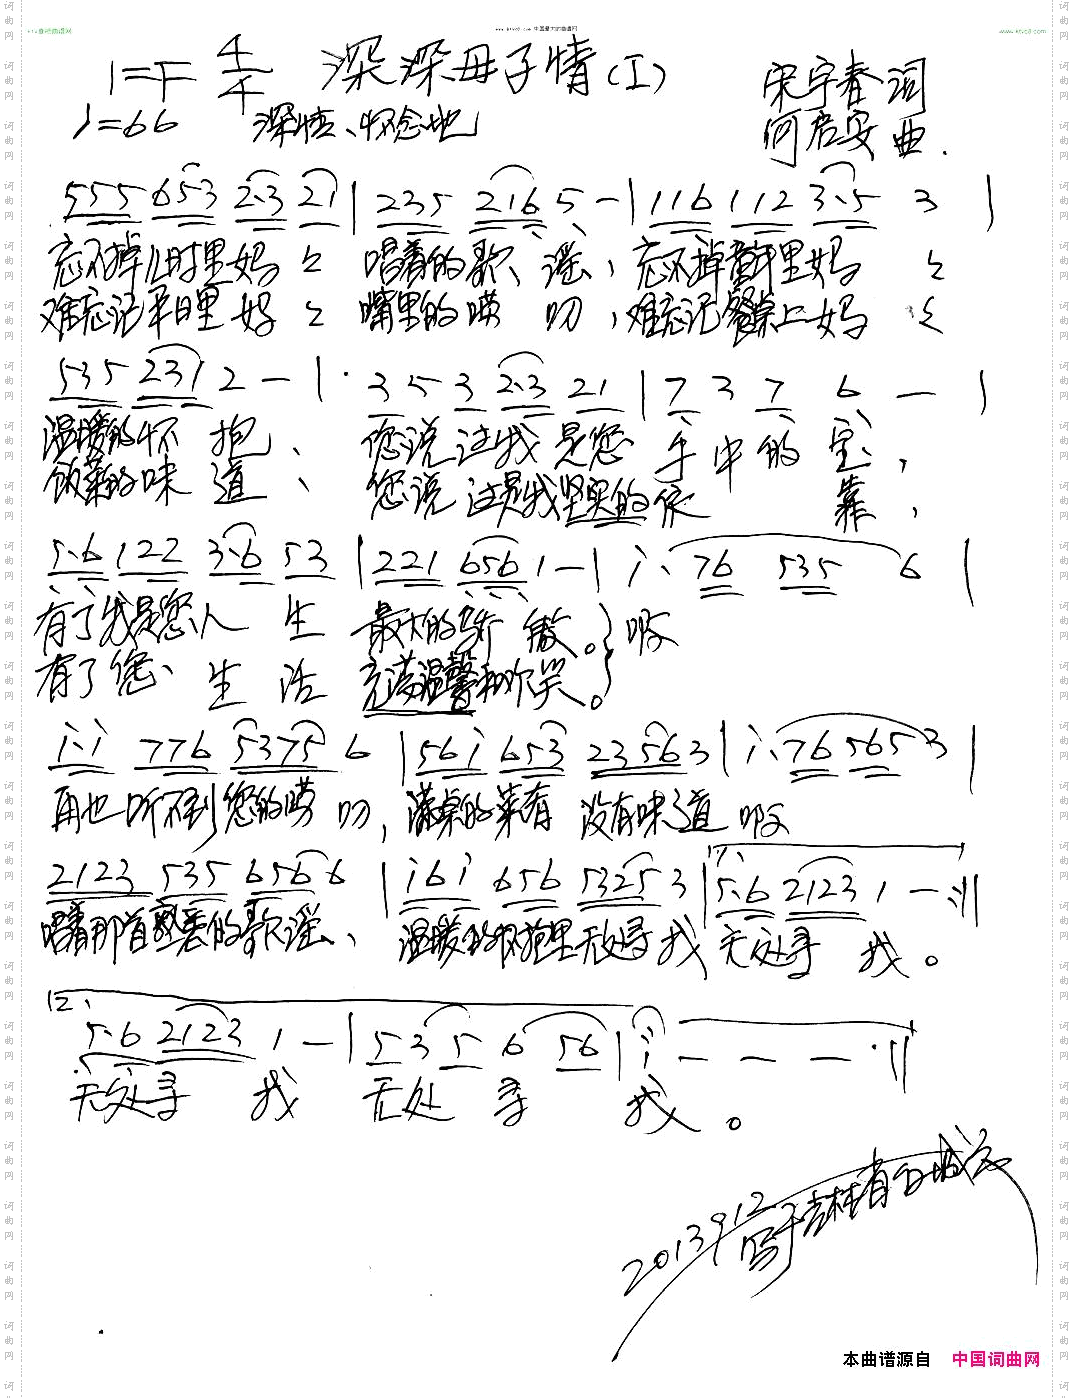 www.ktvc8.com 中国最大的曲谱网
www.ktvc8.com
1=F 4/4 深深母子情(I)
宋宇春 词
♩=66 深情、怀念地
何启安 曲.
555 653 2·3 21 | 235 216 5 - | 116 112 3·5 3 |
忘不掉儿时里妈々 唱着的歌、谣、忘不掉童年里妈々
难忘记平日里妈々 嘴里的唠叨,难忘记餐桌上妈々
535 231 2 - | 3 5 3 2·3 21 | 7 3 7 6 - |
温暖的怀抱、 您说过我是您手中的宝,
饭菜的味道、 您说过是我坚实的依靠,
5·6 122 3·6 53 | 221 656 1 - | i· 76 535 6 |
有了我是您人生最大的骄傲。 啊
有了您、生活充满温馨和欢笑。
i·i 776 5375 6 | 56i 653 23563 | i·76 565 3 |
再也听不到您的唠叨,满桌的菜肴没有味道 啊
2123 535 656 6 | i6i 656 5325 3 | 5·6 2123 1 - :||
唱着那首熟悉的歌谣、 温暖的怀抱里无处寻找 无处寻找。
12、
5·6 2123 1 - | 5 3 5 6 56 | i - - - ·||
无处寻找 无处寻找。
2013912
写于吉林省白城市
本曲谱源自 中国词曲网